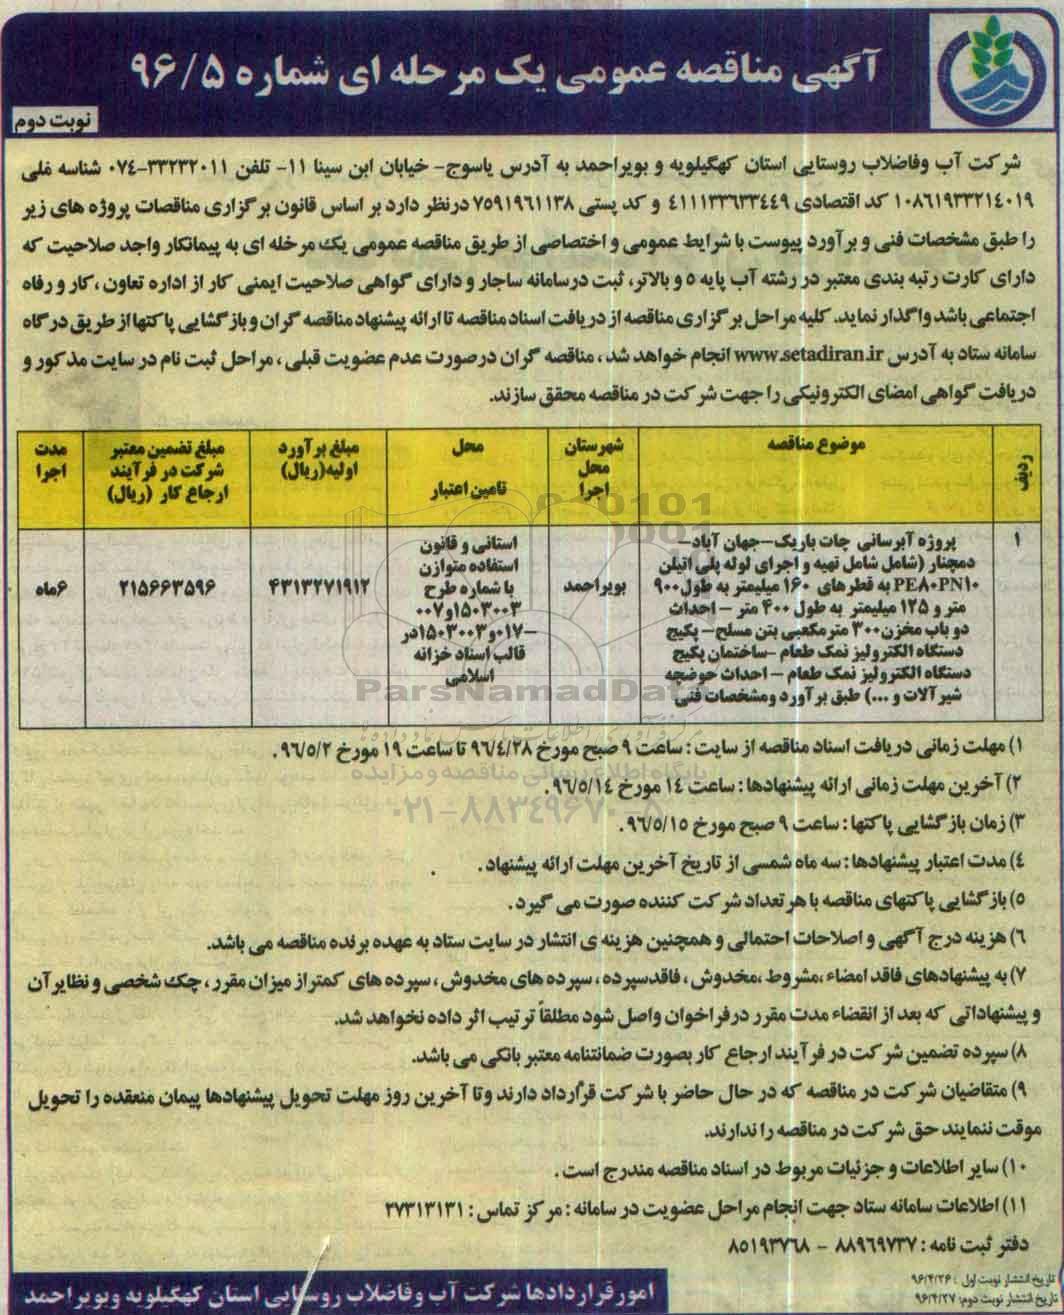 آگهی مناقصه عمومی یک مرحله ای شماره ۹۶/۵
نوبت دوم
شرکت آب وفاضلاب روستایی استان کهگیلویه و بویراحمد به آدرس یاسوج- خیابان ابن سینا ۱۱- تلفن ۳۳۲۳۲۰۱۱-۰۷۴ شناسه ملی
۱۰۸۶۱۹۳۳۲۱۴۰۱۹ کد اقتصادی ۴۱۱۱۳۳۶۳۳۴۴۹ و کد پستی ۷۵۹۱۹۶۱۱۳۸ درنظر دارد بر اساس قانون برگزاری مناقصات پروژه های زیر
را طبق مشخصات فنی و برآورد پیوست با شرایط عمومی و اختصاصی از طریق مناقصه عمومی یک مرحله ای به پیمانکار واجد صلاحیت که
دارای کارت رتبه بندی معتبر در رشته آب پایه ۵ و بالاتر، ثبت درسامانه ساجار و دارای گواهی صلاحیت ایمنی کار از اداره تعاون ،کار و رفاه
اجتماعی باشد واگذار نماید. کلیه مراحل برگزاری مناقصه از دریافت اسناد مناقصه تا ارائه پیشنهاد مناقصه گران و بازگشایی پاکتها از طریق درگاه
سامانه ستاد به آدرس www.setadiran.ir انجام خواهد شد ، مناقصه گران درصورت عدم عضویت قبلی ، مراحل ثبت نام در سایت مذکور و
دریافت گواهی امضای الکترونیکی را جهت شرکت در مناقصه محقق سازند.
ردیف
موضوع مناقصه
شهرستان
محل
اجرا
محل
تامین اعتبار
مبلغ برآورد
اولیه(ریال)
مبلغ تضمین معتبر
شرکت در فرآیند
ارجاع کار (ریال)
مدت
اجرا
۱
پروژه آبرسانی چات باریک-جهان آباد-
دمچنار (شامل شامل تهیه و اجرای لوله پلی اتیلن
PE۸۰PN۱۰ به قطرهای ۱۶۰ میلیمتر به طول ۹۰۰
متر و ۱۲۵ میلیمتر به طول ۴۰۰ متر - احداث
دو باب مخزن۳۰۰ مترمکعبی بتن مسلح- پکیج
دستگاه الکترولیز نمک طعام -ساختمان پکیج
دستگاه الکترولیز نمک طعام - احداث حوضچه
شیرآلات و ...) طبق برآورد ومشخصات فنی
بویراحمد
استانی و قانون
استفاده متوازن
با شماره طرح
۱۵۰۳۰۰۳و۰۰۷
-۰۱۷و۱۵۰۳۰۰۳در
قالب اسناد خزانه
اسلامی
۴۳۱۳۲۷۱۹۱۲
۲۱۵۶۶۳۵۹۶
۶ماه
ParsNamadData
پایگاه اطلاع رسانی مناقصه و مزایده
۰۲۱-۸۸۳۴۹۶۷۰-۵
۱) مهلت زمانی دریافت اسناد مناقصه از سایت : ساعت ۹ صبح مورخ ۹۶/۴/۲۸ تا ساعت ۱۹ مورخ ۹۶/۵/۲.
۲) آخرین مهلت زمانی ارائه پیشنهادها : ساعت ۱۴ مورخ ۹۶/۵/۱۴.
۳) زمان بازگشایی پاکتها : ساعت ۹ صبح مورخ ۹۶/۵/۱۵.
۴) مدت اعتبار پیشنهادها : سه ماه شمسی از تاریخ آخرین مهلت ارائه پیشنهاد .
۵) بازگشایی پاکتهای مناقصه با هر تعداد شرکت کننده صورت می گیرد .
۶) هزینه درج آگهی و اصلاحات احتمالی و همچنین هزینه ی انتشار در سایت ستاد به عهده برنده مناقصه می باشد.
۷) به پیشنهادهای فاقد امضاء ،مشروط ،مخدوش ، فاقدسپرده ، سپرده های مخدوش ، سپرده های کمتراز میزان مقرر ، چک شخصی و نظایرآن
و پیشنهاداتی که بعد از انقضاء مدت مقرر درفراخوان واصل شود مطلقاً ترتیب اثر داده نخواهد شد.
۸) سپرده تضمین شرکت در فرآیند ارجاع کار بصورت ضمانتنامه معتبر بانکی می باشد.
۹) متقاضیان شرکت در مناقصه که در حال حاضر با شرکت قرارداد دارند وتا آخرین روز مهلت تحویل پیشنهادها پیمان منعقده را تحویل
موقت ننمایند حق شرکت در مناقصه را ندارند.
۱۰) سایر اطلاعات و جزئیات مربوط در اسناد مناقصه مندرج است .
۱۱) اطلاعات سامانه ستاد جهت انجام مراحل عضویت در سامانه : مرکز تماس : ۲۷۳۱۳۱۳۱
دفتر ثبت نامه : ۸۸۹۶۹۷۳۷ - ۸۵۱۹۳۷۶۸
تاریخ انتشار نوبت اول : ۹۶/۴/۲۶
تاریخ انتشار نوبت دوم: ۹۶/۴/۲۷
امور قراردادها شرکت آب وفاضلاب روستایی استان کهگیلویه وبویراحمد